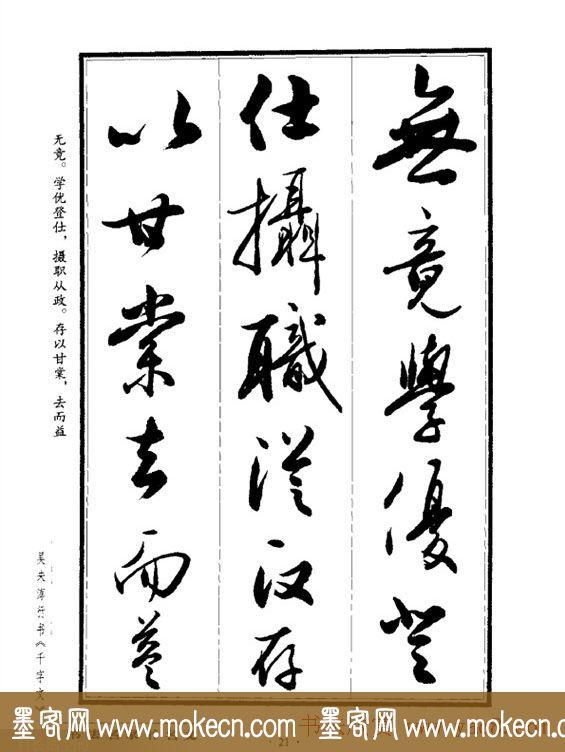 無竟學優登
仕攝職從政存
以甘棠去而益
无竟。学优登仕，摄职从政。存以甘棠，去而益
行书《千字文》
墨客网 www.mokecn.com 墨客网 www.mokecn.com
21